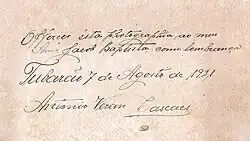 Offereço esta photographia ao meu
Amº Jacob Baptista, como lembrança
Tubarão 7 de Agosto de 1921
Antonio Veran Cascaes